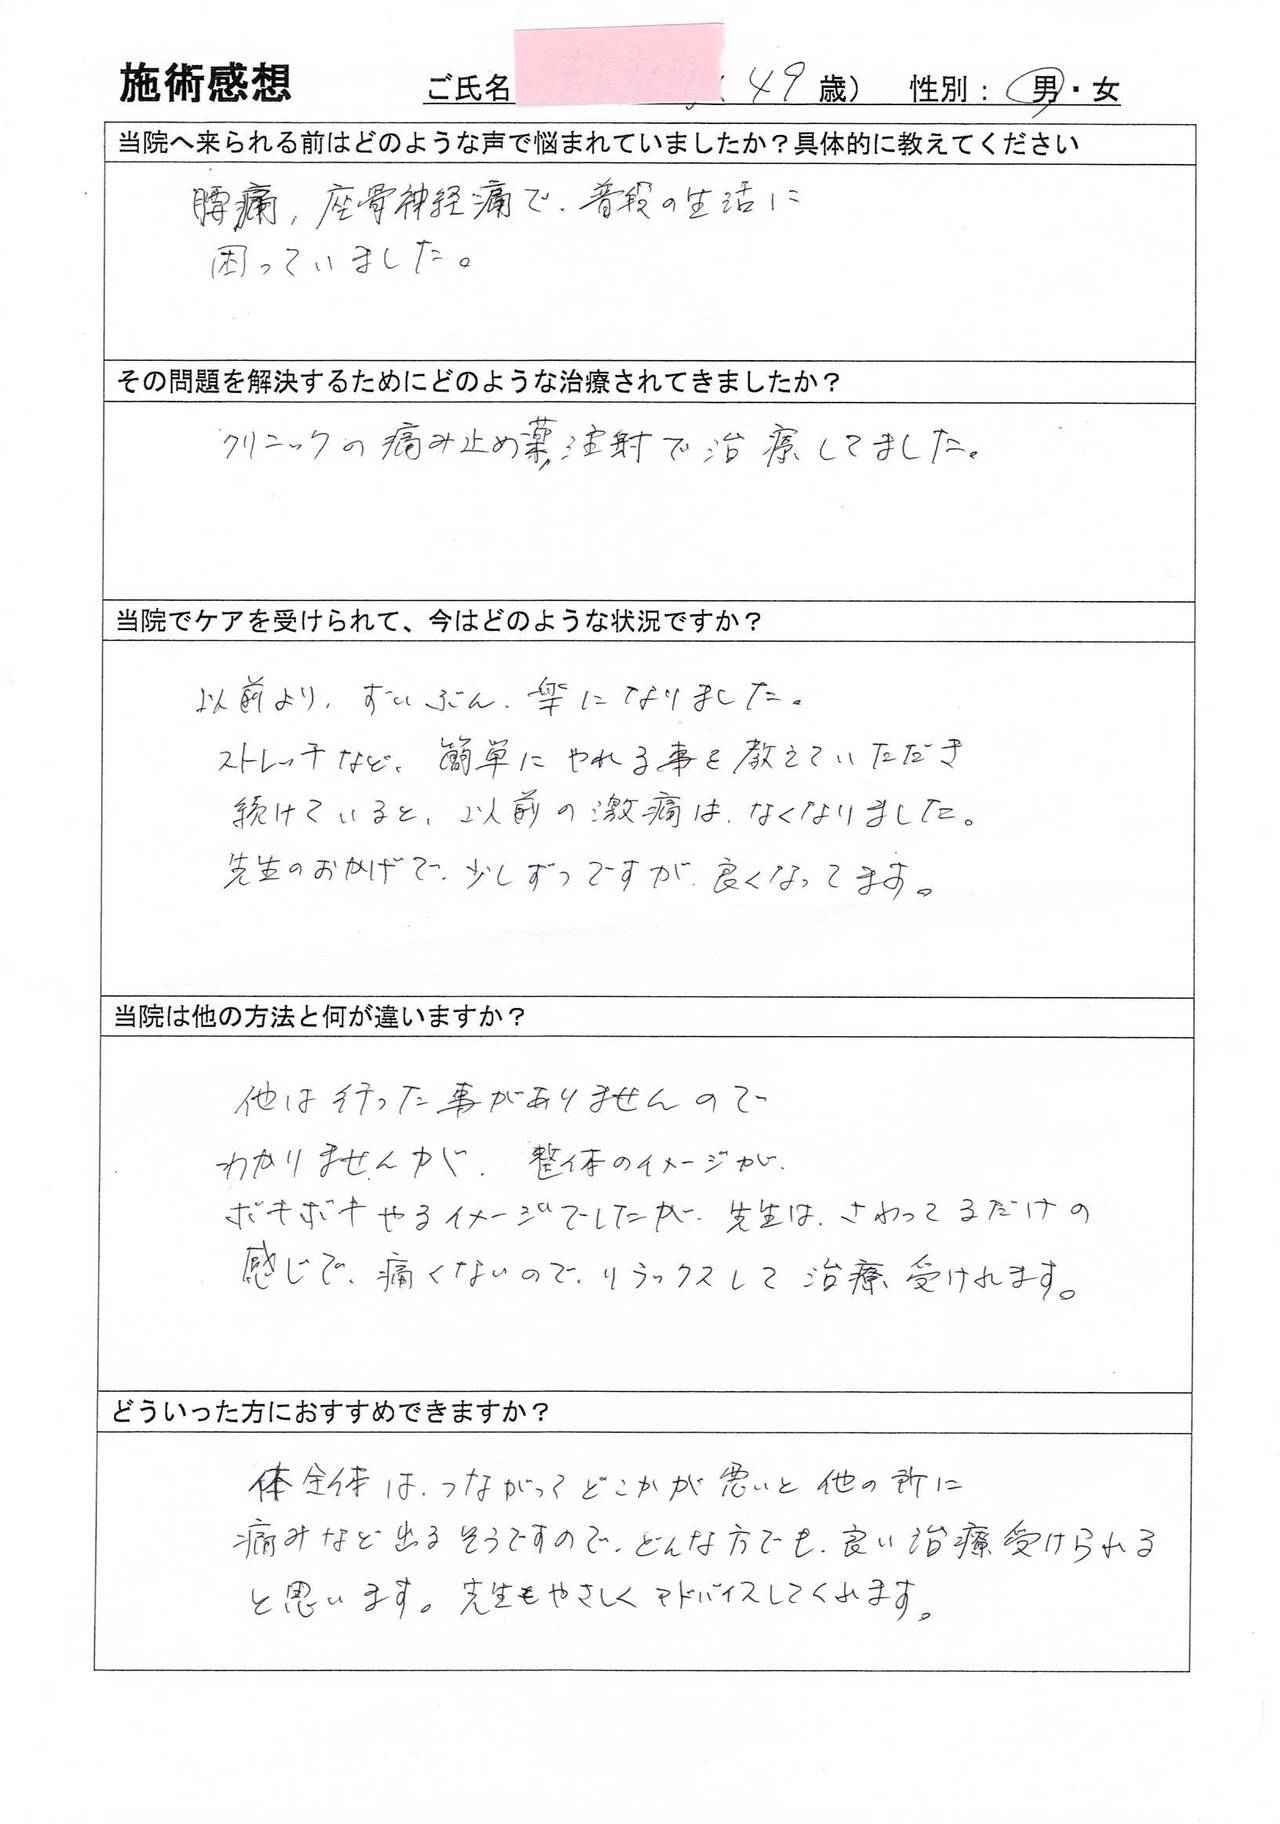 施術感想 ご氏名 (49歳) 性別：男・女
当院へ来られる前はどのような声で悩まれていましたか？具体的に教えてください
腰痛，座骨神経痛で、普段の生活に
困っていました。
その問題を解決するためにどのような治療されてきましたか？
クリニックの痛み止め薬，注射で治療してました。
当院でケアを受けられて、今はどのような状況ですか？
以前より、ずいぶん、楽になりました。
ストレッチなど、簡単にやれる事を教えていただき
続けていると、以前の激痛は、なくなりました。
先生のおかげで、少しずつですが、良くなってます。
当院は他の方法と何が違いますか？
他は行った事がありませんので
わかりませんが、整体のイメージが、
ボキボキやるイメージでしたが、先生は、さわってるだけの
感じで、痛くないので、リラックスして治療受けれます。
どういった方におすすめできますか？
体全体は、つながってどこかが悪いと他の所に
痛みなど出るそうですので、どんな方でも、良い治療受けられる
と思います。先生もやさしくアドバイスしてくれます。